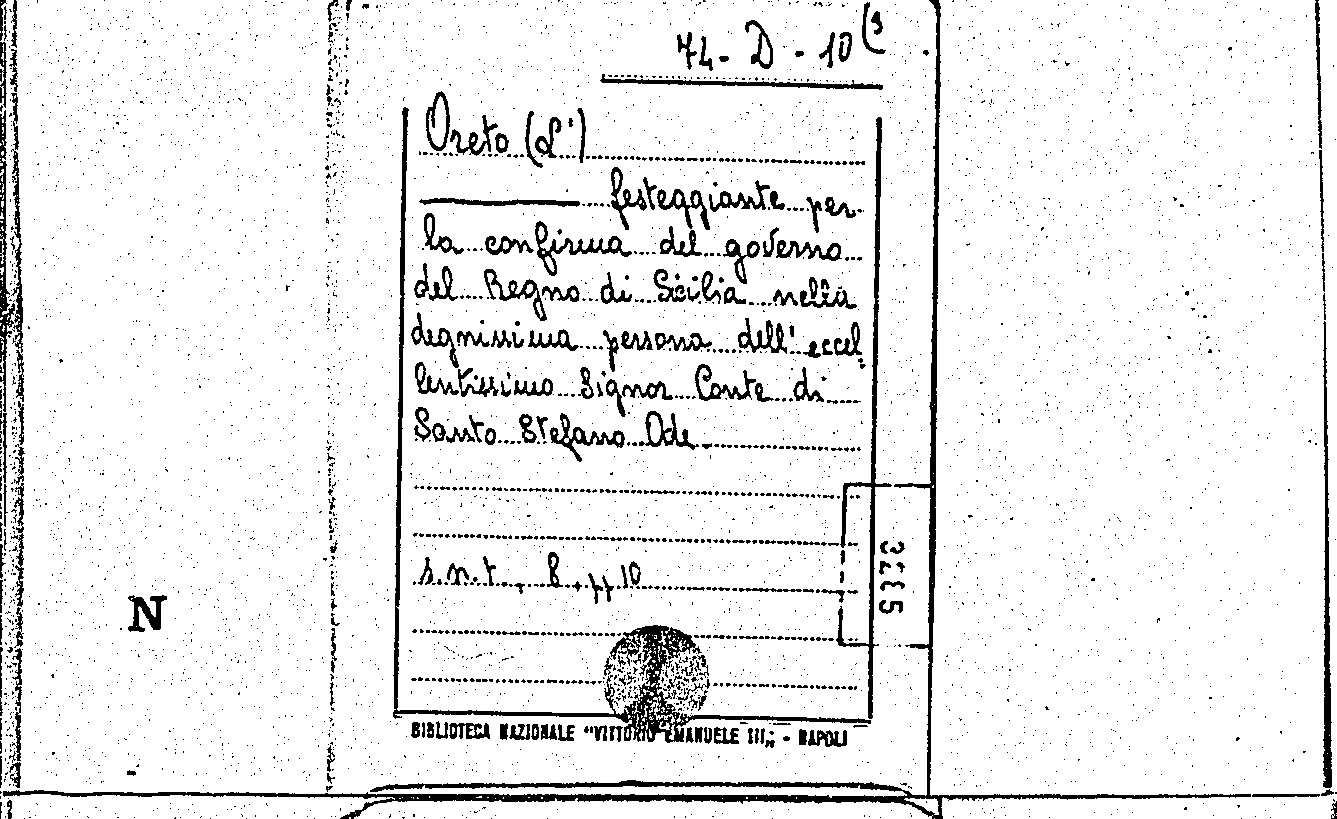 74-D-10(3
Oreto (L')
festeggiante per
la confirma del governo
del Regno di Sicilia nella
degnissima persona dell'eccel=
lentissimo Signor Conte di
Santo Stefano Ode
s.n.t., 8, pp 10
N
BIBLIOTECA NAZIONALE "VITTORIO EMANUELE III„ - NAPOLI